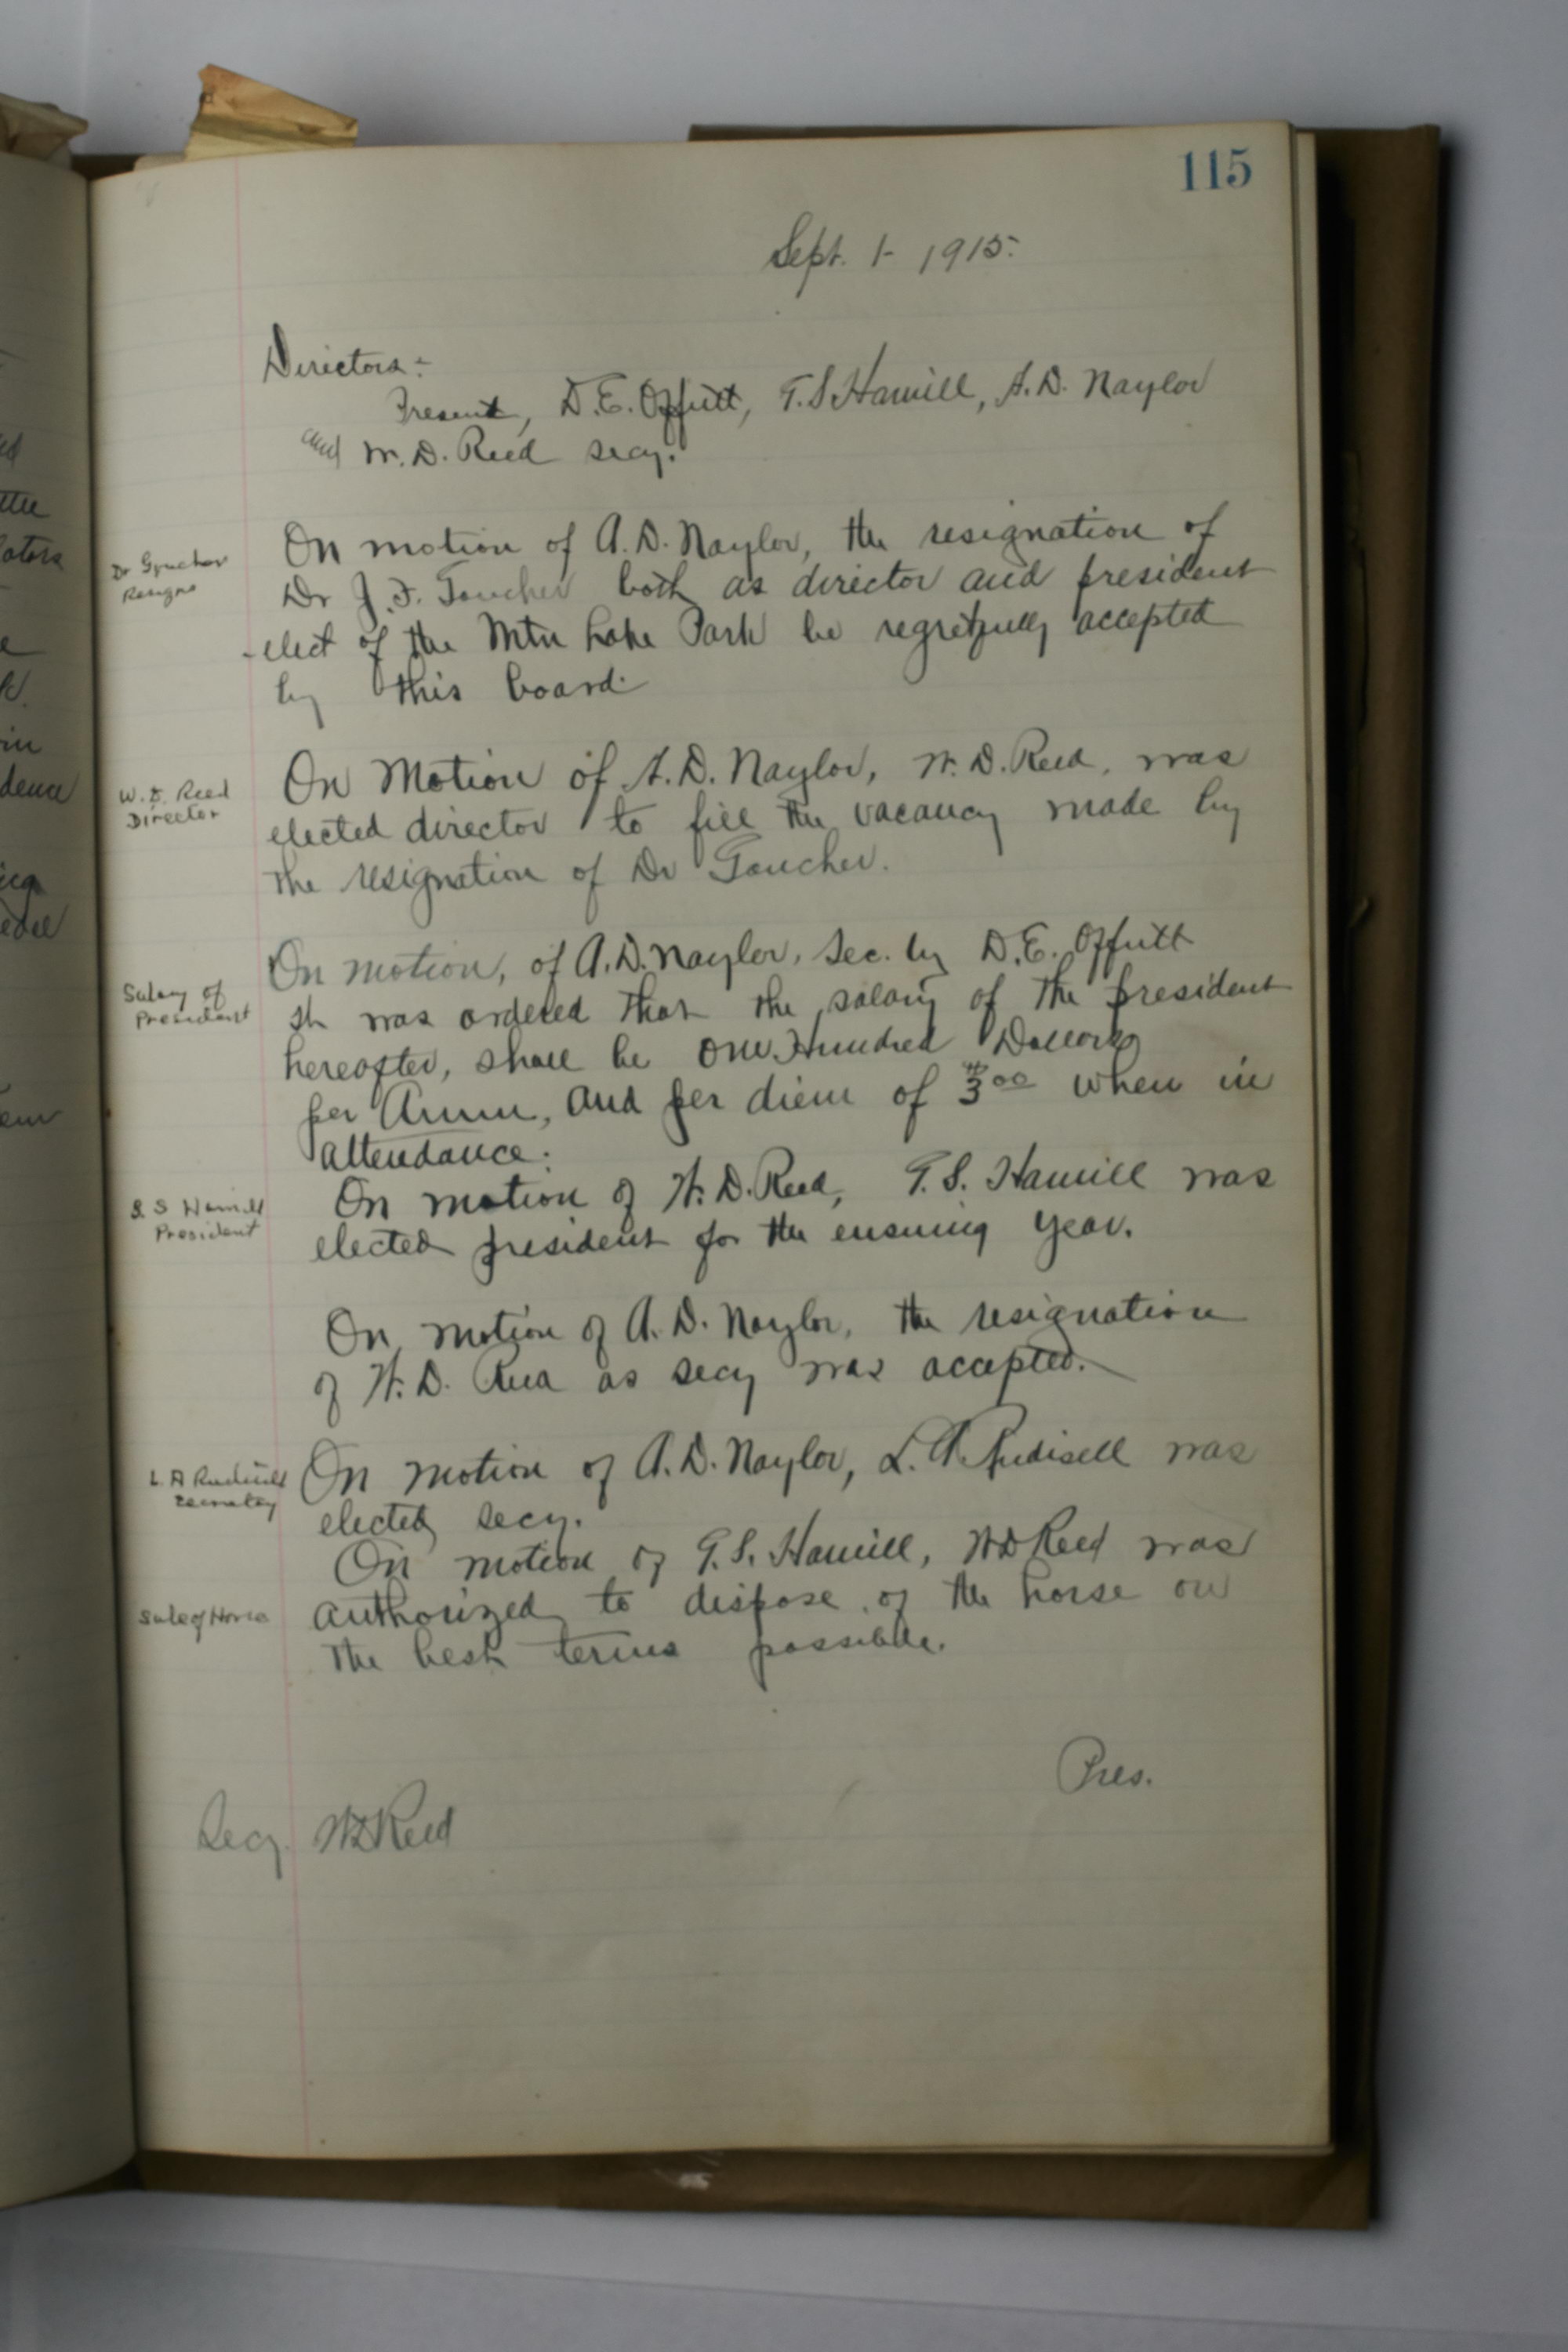 115
Sept. 1- 1915.
Directors:-
Present, D.E. Offutt, G.S. Hamill, A.D. Naylor
and W.D. Reed secy.
Dr Goucher
Resigns
On motion of A.D. Naylor, the resignation of
Dr J.F. Goucher both as director and president
-elect of the Mtn Lake Park be regretfully accepted
by this board.
W.D. Reed
Director
On Motion of A.D. Naylor, W.D. Reed, was
elected director to fill the vacancy made by
the resignation of Dr Goucher.
Salary of
President
On motion, of A.D. Naylor, Sec. by D.E. Offutt
It was ordered that the salary of the president
hereafter, shall be One Hundred Dollars
per Annum, and per diem of $3.00 when in
attendance.
G.S. Hamill
President
On motion of W.D. Reed, G.S. Hamill was
elected president for the ensuing year.
On motion of A.D. Naylor, the resignation
of W.D. Reed as secy was accepted.
L.A Rudisill
Secretary
On motion of A.D. Naylor, L.A. Rudisell was
elected secy.
On motion of G.S. Hamill, W.D. Reed was
Sale of Horse
authorized to dispose of the horse on
the best terms possible.
Pres.
Secy. W.D. Reed